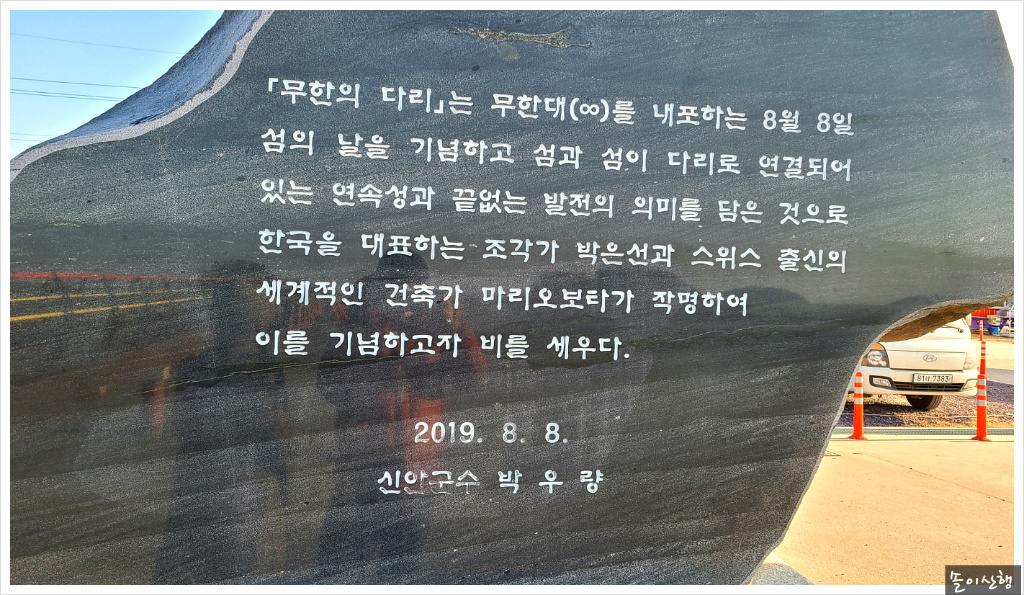 「무한의 다리」는 무한대(∞)를 내포하는 8월 8일
섬의 날을 기념하고 섬과 섬이 다리로 연결되어
있는 연속성과 끝없는 발전의 의미를 담은 것으로
한국을 대표하는 조각가 박은선과 스위스 출신의
세계적인 건축가 마리오보타가 작명하여
이를 기념하고자 비를 세우다.
2019. 8. 8.
신안군수 박 우 량
81나 7383
솔이산행